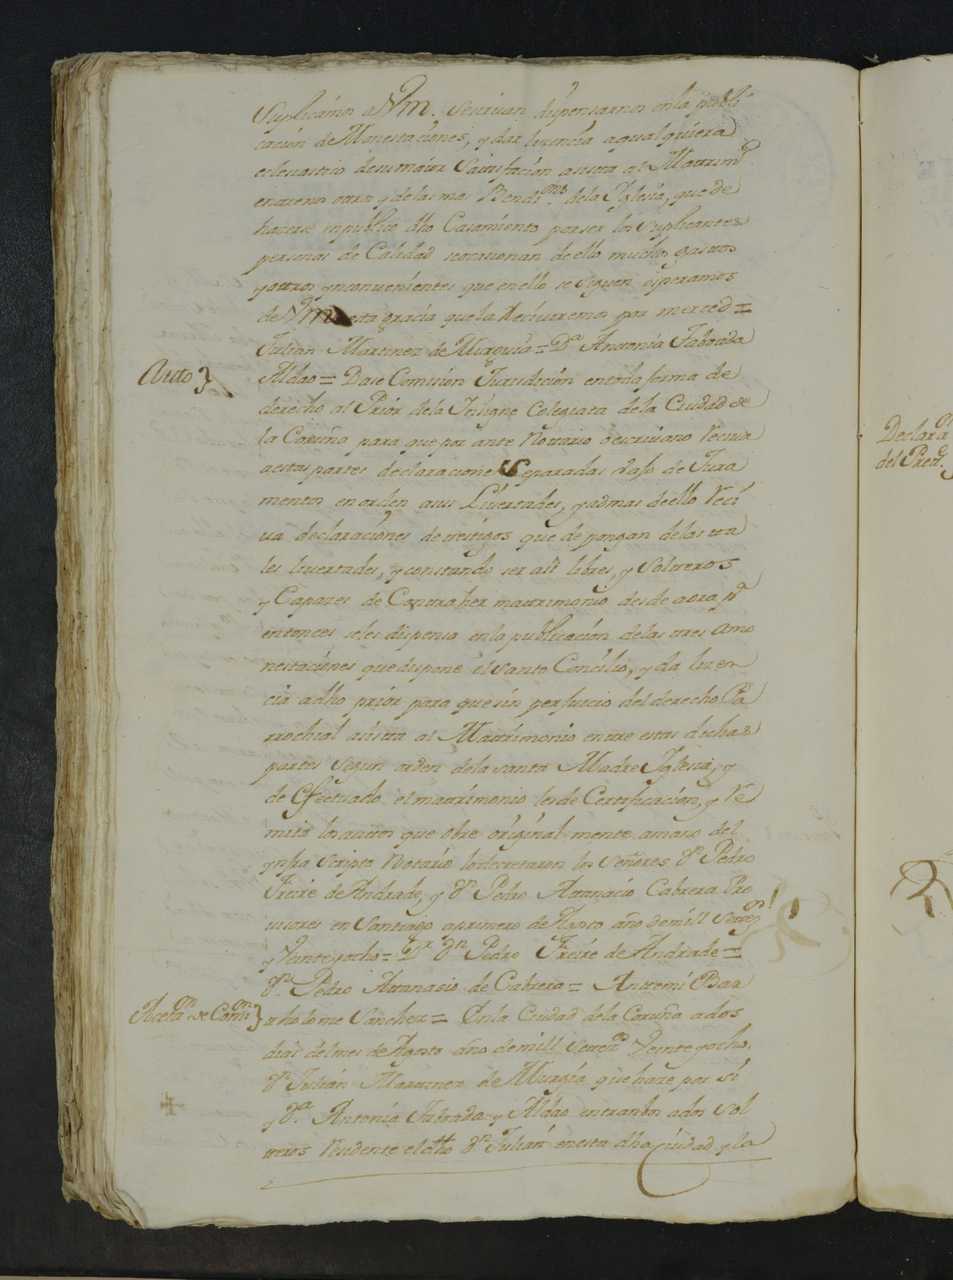 Suplicamos a Vm. se sirvan dispensarnos en la publi
cacion de Monestaciones, y dar licencia a qual quiera
eclesiastico de su maior Satisfacion asista al Matrim.º
en areno otro y de las mas Bendi.nes de la Yglesia, que de
hacerse in publico dho Casamiento por ser los suplicantes
personas de Calidad se ocasionan de ello muchos gastos
y otros ynconvenientes que en ello se siguen esperamos
de Vm esta gracia que la Recivaremos por merced =
Julian Martinez de Murguia = D.ª Anttonia Taboada
Aldao = Dase Comision Jurisdicion en toda forma de
Autto
derecho al Prior de la Insigne Colegiata de la Ciudad de
la Coruña para que por ante Nottario o escrivano Reciva
a estas partes declaraciones Separadas vajo de Jura
mentos en orden a sus Livertades, y ademas de ello Reci
va declaraciones de testigos que depongan de las ta
les livertades, y constando ser asi libres, y Solteros
y Capazes de Contraher matrimonio desde aora p.ª
entonces se les dispensa en la publicacion de las tres Amo
nestaciones que dispone el Santo Concilio, y da licen
cia a dho prior para que sin perjuicio del derecho Pa
rrochial asista al Mattrimonio entre estas dichas
partes Segun orden de la santa Madre Yglesia, y
de Efectuado el matrimonio les de Certificacion, y Re
mita los autos que obre original mente a mano del
ynfra scripto Notario lo decretaron los Señores D.n Pedro
Freire de Andrade, y D.n Pedro Attanacio Cabrera Pro
visores en Santiago a primero de Agosto año de mill Setez.os
y Vante yocho = D.r D.n Pedro Freire de Andrade =
D.n Pedro Attanasio de Cabrera = Anttemi Bar
tholome Sanchez = En la Ciudad de la Coruña a dos
Acep.on de Com.on
dias del mes de Agosto año de mill Setez.os Veinte yocho,
D.n Julian Martinez de Murgia que haze por si
y D.ª Antonia Tabuada y Aldao entrambos a dos Sol
teros Residente el dho D.n Julian en esta dha Ciudad y la
Declara.on
del Pret.